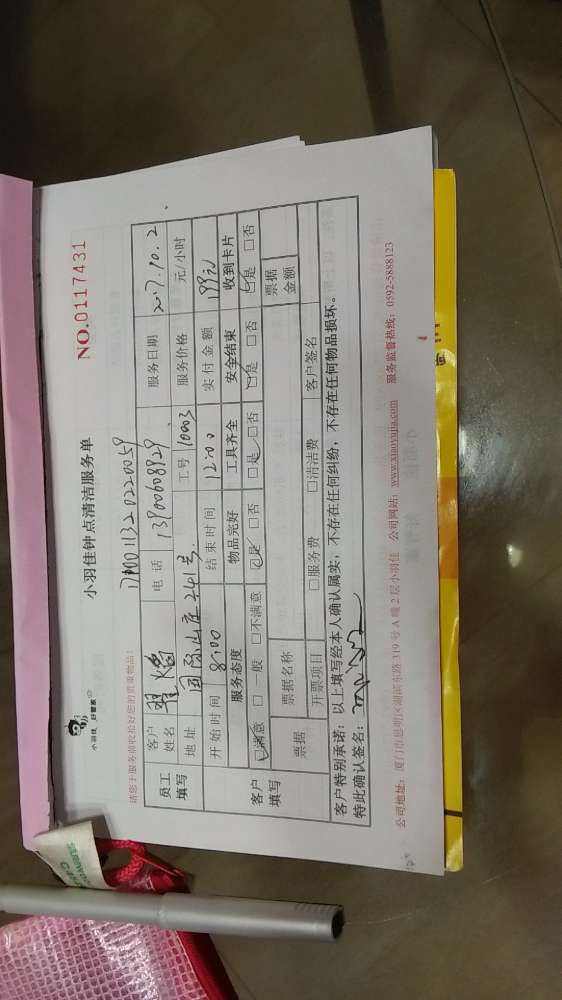 小羽佳，好管家
小羽佳钟点清洁服务单
NO.0117431
请您于服务前收拾好您的贵重物品！
员工填写
客户姓名
电话 13900608929
服务日期 2017.10.2
地址 国际山庄241号
工号 10003
服务价格 元/小时
开始时间 8:00
结束时间 12:00
实付金额 199元
客户填写
服务态度 物品完好 工具齐全 安全结束 收到卡片
☑满意 □一般 □不满意 ☑是 □否 ☑是 □否 ☑是 □否 ☑是 □否
票据 票据名称 票据金额
开票项目 □服务费 □清洁费 客户签名
客户特别承诺：以上填写经本人确认属实，不存在任何纠纷，不存在任何物品损坏。
特此确认签名：
公司地址：厦门市思明区湖滨东路319号A幢2层小羽佳 公司网站：www.xiaoyujia.com 服务监督热线：0592-5888123